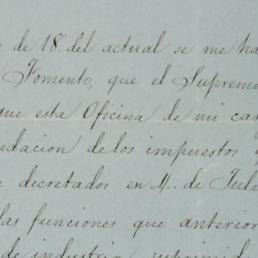 de 18. del actual se me ha
Fomento, que el Supremo
que esta Oficina de mi car
dacion de los impuestos
decretados en 4. de Jul
las funciones que anterior
de industria suprimid